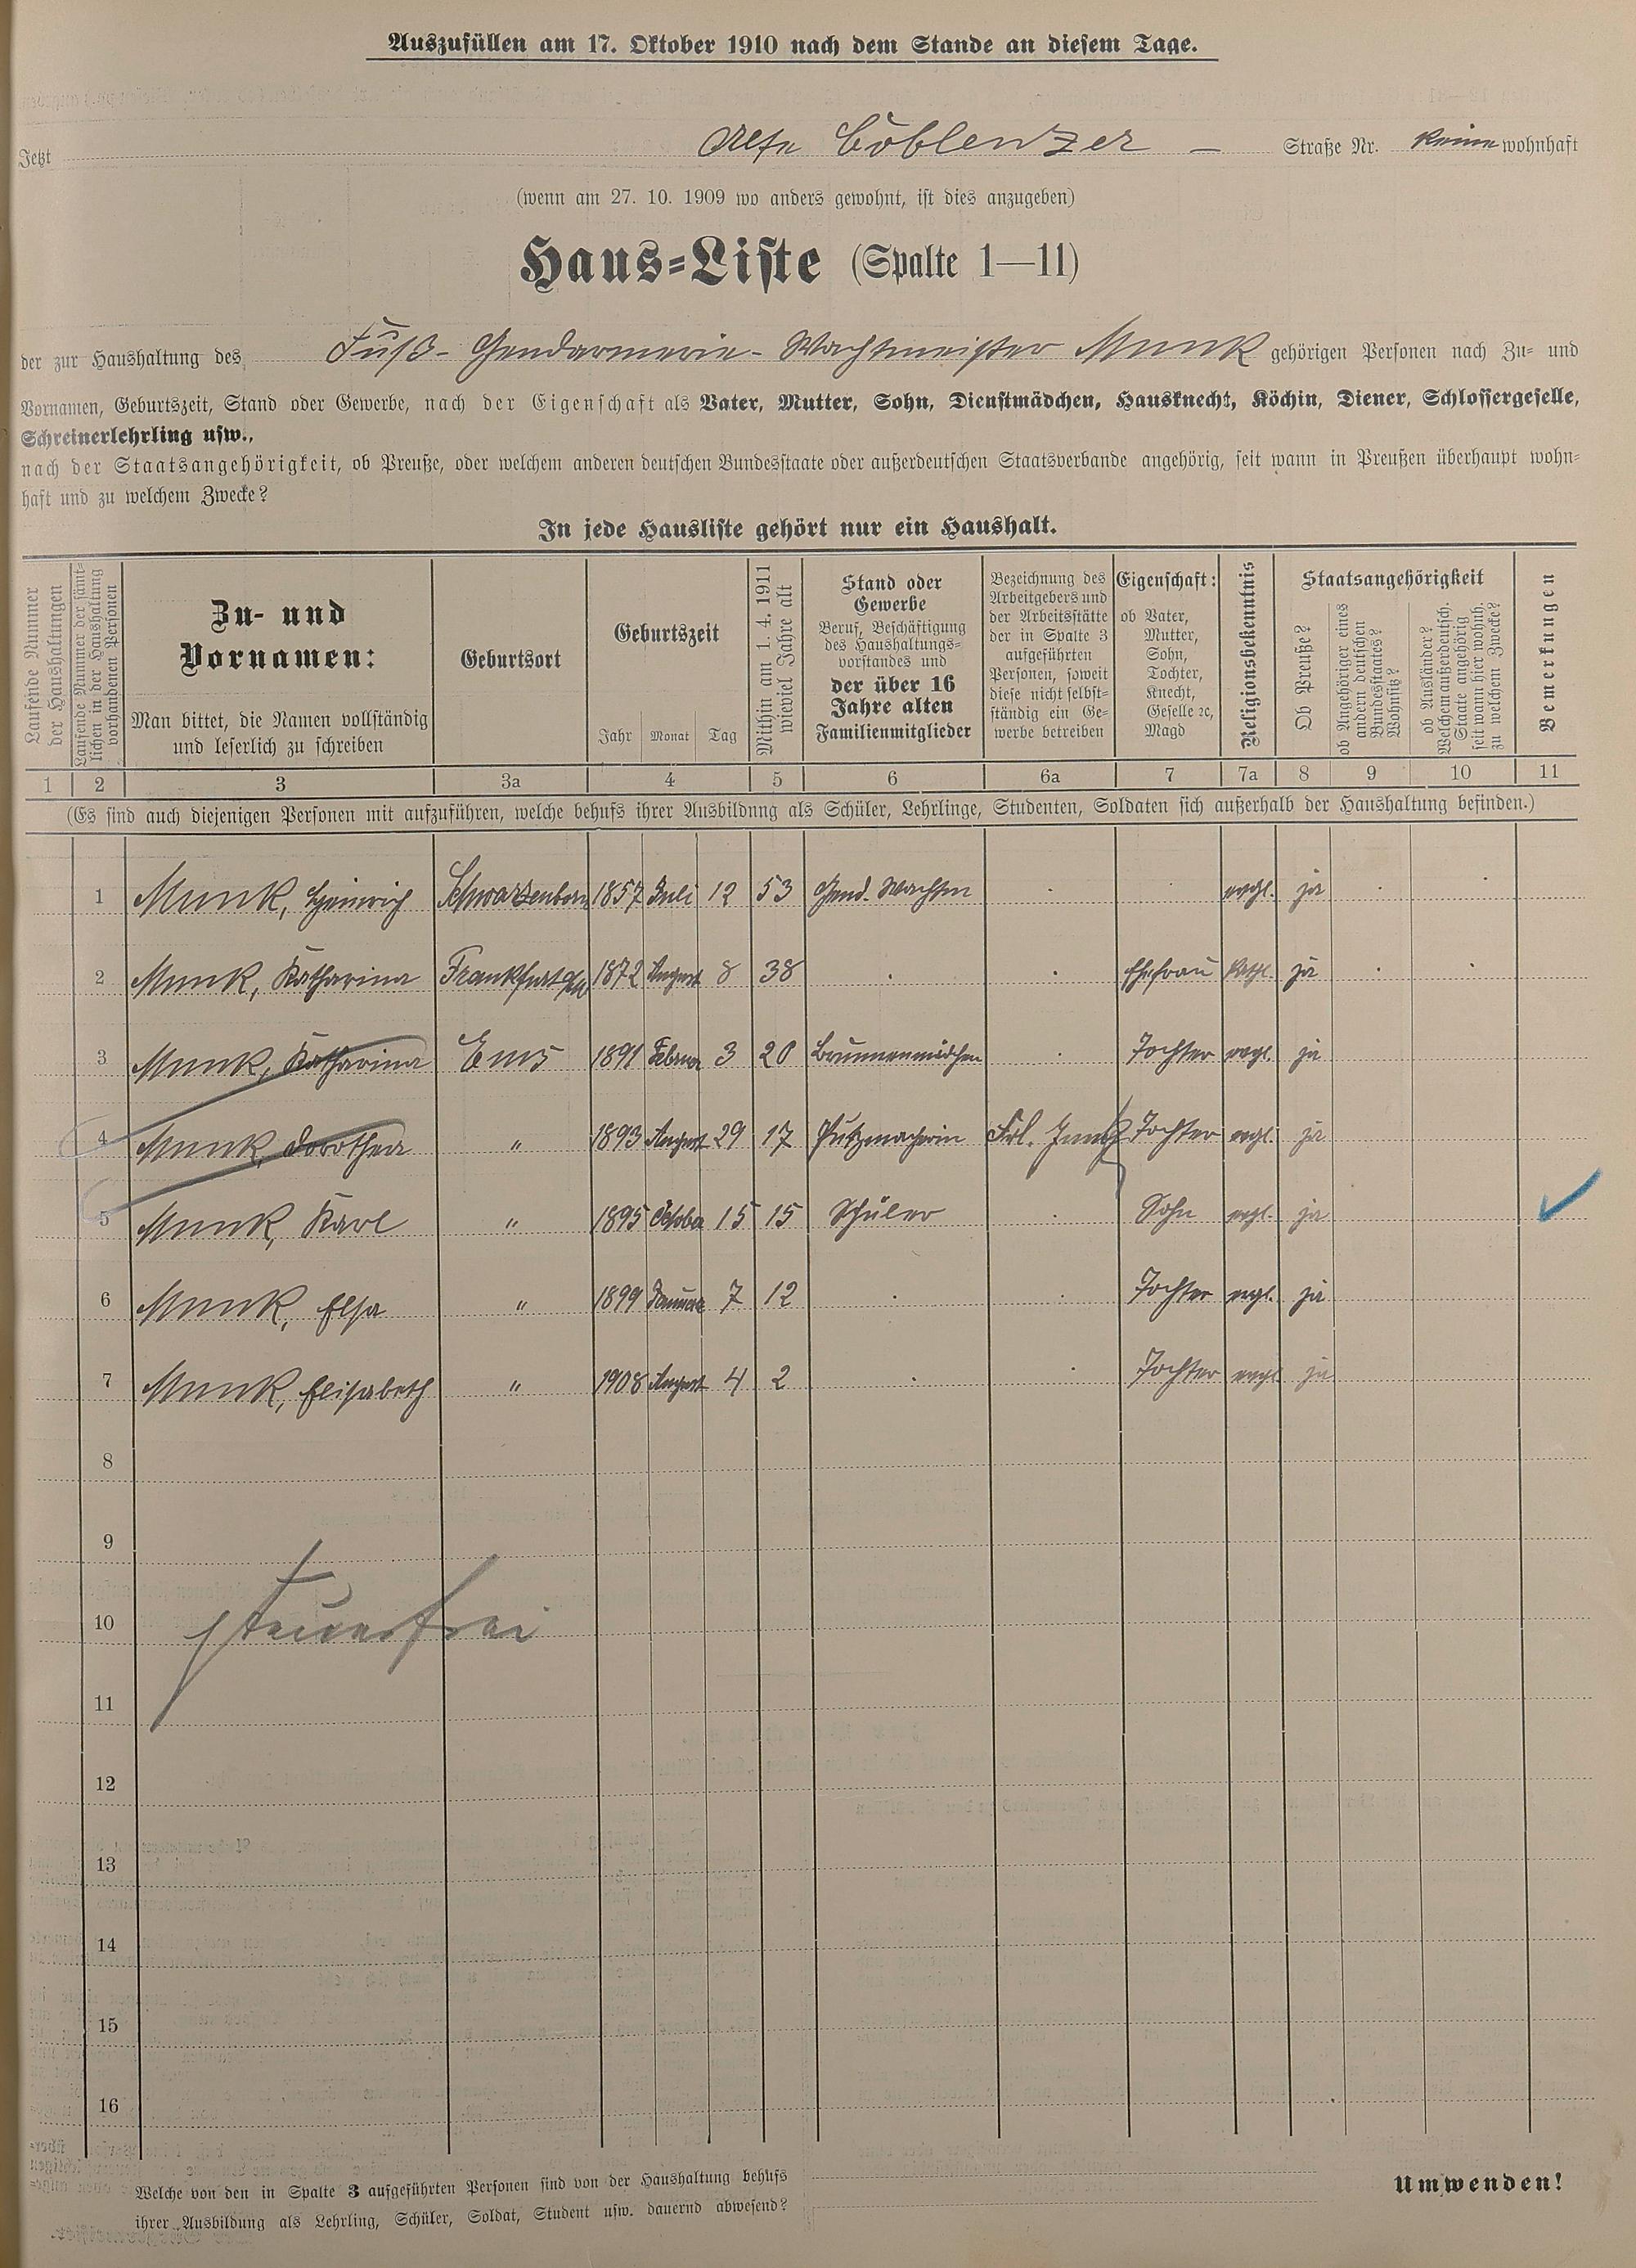 Auszufüllen am 17. Oktober 1910 nach dem Stande an diesem Tage.
Jetzt Alte Coblenzer - Straße Nr. keine wohnhaft
(wenn am 27. 10. 1909 wo anders gewohnt, ist dies anzugeben)
Haus-Liste (Spalte 1—11)
der zur Haushaltung des Fuß-Gendarmerie-Wachtmeister Munk gehörigen Personen nach Zu- und
Vornamen, Geburtszeit, Stand oder Gewerbe, nach der Eigenschaft als Vater, Mutter, Sohn, Dienstmädchen, Hausknecht, Köchin, Diener, Schlossergeselle,
Schreinerlehrling usw.,
nach der Staatsangehörigkeit, ob Preuße, oder welchem anderen deutschen Bundesstaate oder außerdeutschen Staatsverbande angehörig, seit wann in Preußen überhaupt wohn-
haft und zu welchem Zwecke?
In jede Hausliste gehört nur ein Haushalt.
Laufende Nummer
der Haushaltungen
Laufende Nummer der sämt-
lichen in der Haushaltung
vorhandenen Personen
Zu- und
Vornamen:
Man bittet, die Namen vollständig
und leserlich zu schreiben
Geburtsort
Geburtszeit
Jahr Monat Tag
Mithin am 1. 4. 1911
wieviel Jahre alt
Stand oder
Gewerbe
Beruf, Beschäftigung
des Haushaltungs-
vorstandes und
der über 16
Jahre alten
Familienmitglieder
Bezeichnung des
Arbeitgebers und
der Arbeitsstätte
der in Spalte 3
aufgeführten
Personen, soweit
diese nicht selbst-
ständig ein Ge-
werbe betreiben
Eigenschaft:
ob Vater,
Mutter,
Sohn,
Tochter,
Knecht,
Geselle ꝛc,
Magd
Religionsbekenntnis
Staatsangehörigkeit
Ob Preuße?
ob Angehöriger eines
andern deutschen
Bundesstaates?
Wohnsitz?
ob Ausländer?
Welchem außerdeutsch.
Staate angehörig
seit wann hier wohnh.
zu welchem Zwecke?
Bemerkungen
1 2 3 3a 4 5 6 6a 7 7a 8 9 10 11
(Es sind auch diejenigen Personen mit aufzuführen, welche behufs ihrer Ausbildung als Schüler, Lehrlinge, Studenten, Soldaten sich außerhalb der Haushaltung befinden.)
1 Munk, Heinrich Schwarzenborn 1857 Juli 12 53 Gend. Wachtm evgl. ja
2 Munk, Katharina Frankfurt a/M 1872 August 8 38 Ehefrau kath. ja
3 Munk, Katharina Ems 1891 Februar 3 20 Brunnenmädchen Tochter evgl. ja
4 Munk, Dorothea " 1893 August 29 17 Putzmacherin Frl. Tochter evgl. ja
5 Munk, Karl " 1895 October 15 15 Schüler Sohn evgl. ja
6 Munk, Elsa " 1899 Januar 7 12 Tochter evgl. ja
7 Munk, Elisabeth " 1908 August 4 2 Tochter evgl. ja
8
9
10 steuerfrei
11
12
13
14
15
16
Welche von den in Spalte 3 aufgeführten Personen sind von der Haushaltung behufs
ihrer Ausbildung als Lehrling, Schüler, Soldat, Student usw. dauernd abwesend?
Umwenden!